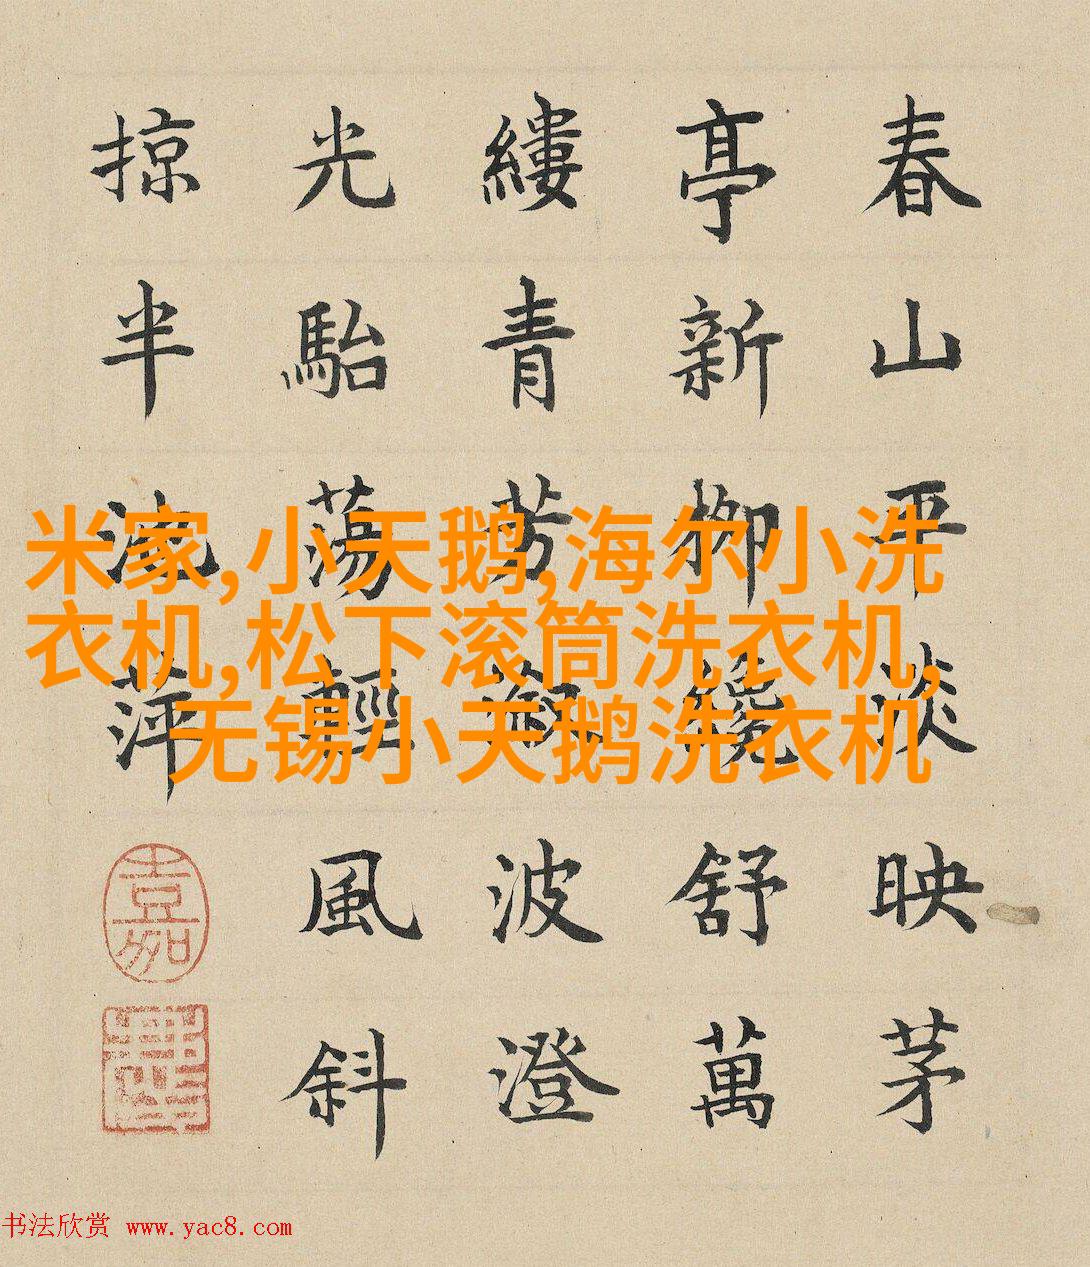 春山平淡映茅
亭新柳纔舒萬
縷青芳波澄
光駘蕩輕風斜
掠半流萍
嘉
米家,小天鹅,海尔小洗
衣机,松下滚筒洗衣机,
无锡小天鹅洗衣机
书法欣赏 www.yac8.com